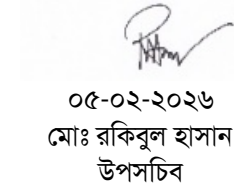 ০৫-০২-২০২৬
মোঃ রকিবুল হাসান
উপসচিব